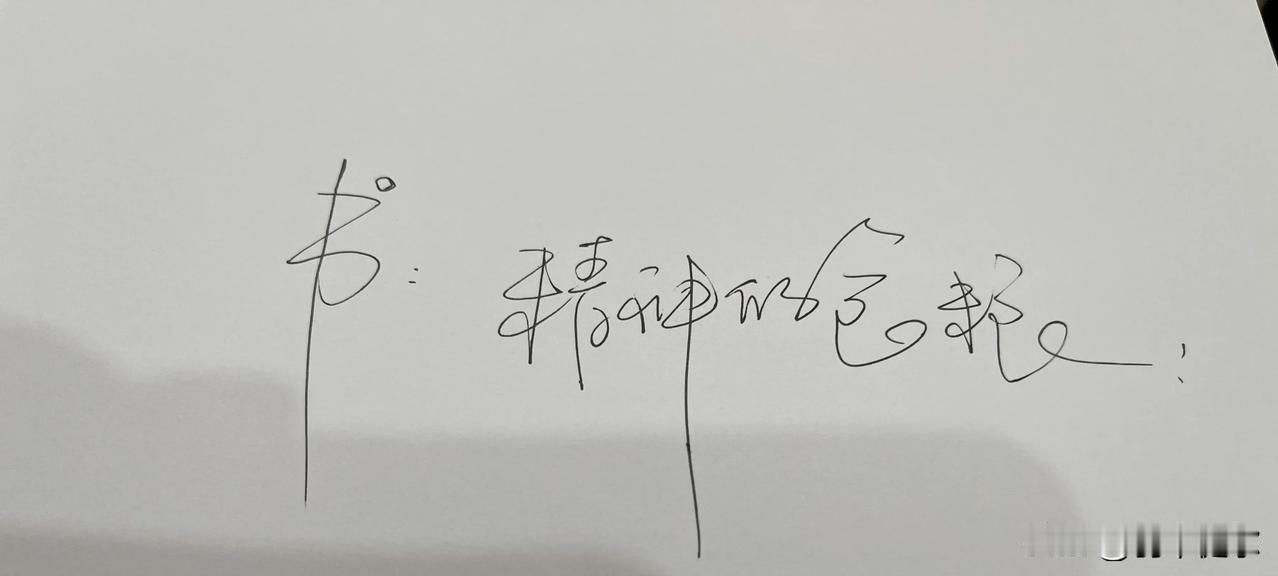 书：精神的食粮！